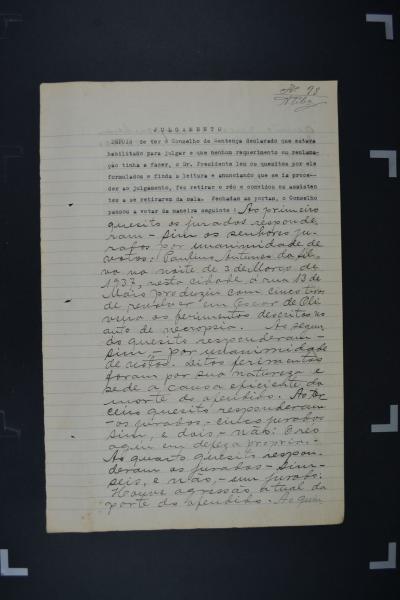 98
JULGAMENTO
DEPOIS de ter o Conselho de Sentença declarado que estava
habilitado para julgar e que nenhum requerimento ou reclama-
ção tinha a fazer, o Dr. Presidente leu os quesitos por ele
formulados e finda a leitura e anunciando que se ia proce-
der ao julgamento, fez retirar o réo e convidou os assisten
tes a se retirarem da sala. Fechadas as portas, o Conselho
passou a votar da maneira seguinte: Ao primeiro
quesito os jurados responde
ram - sim os senhores ju-
rados por unanimidade de
votos: Paulino Antunes da Sil-
va na noite de 3 de Março de
1937, nesta cidade á rua 13 de
Maio produziu com cinco tiros
de revolver em Oscar de Oli
veira os ferimentos descritos no
auto de necropsia. Ao segun
do quesito responderam -
sim, - por unanimidade
de votos. Ditos ferimentos
foram por sua natureza e
séde a causa eficiente da
morte do ofendido. Ao ter
ceiro quesito responderam
- os jurados - cinco jurados
sim, e dois - não: O réo
agiu em defeza propria.
Ao quarto quesito respon-
deram os jurados - sim -
seis, e não, - um jurado:
Houve agressão atual da
parte do ofendido. Ao quin